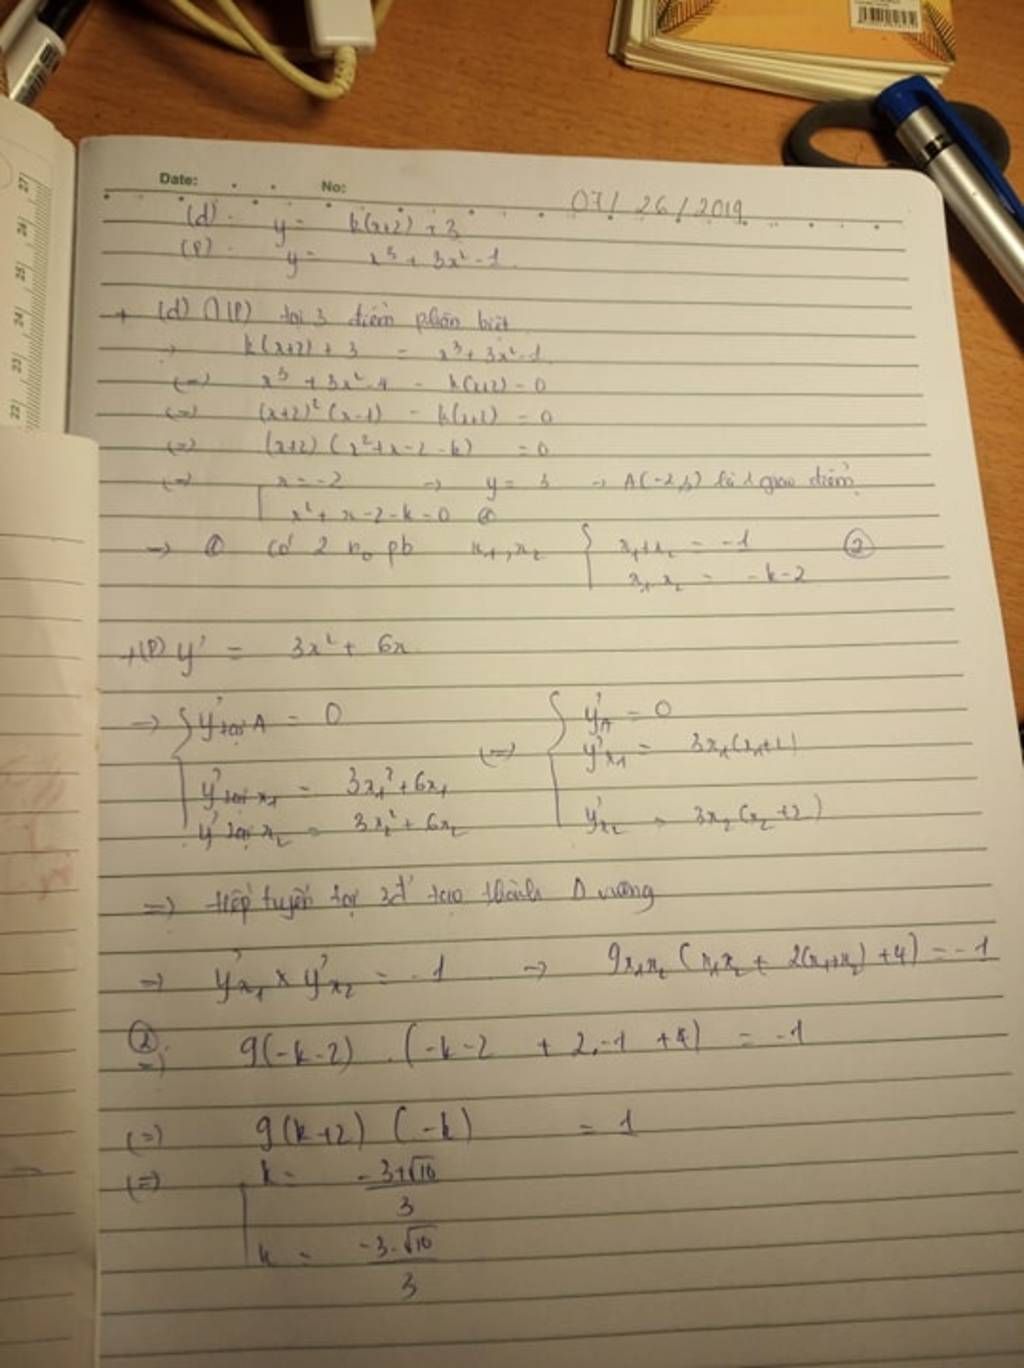 Date: No: 07/26/2019
(d). y = k(x+2) + 3
(P). y = x³ + 3x² - 1
+ (d) ∩ (P) tại 3 điểm phân biệt
→ k(x+2) + 3 = x³ + 3x² - 1
(=) x³ + 3x² - 4 - k(x+2) = 0
(=) (x+2)² (x-1) - k(x+2) = 0
(=) (x+2) (x² + x - 2 - k) = 0
(=) [ x = -2 → y = 3 → A(-2,3) là 1 giao điểm
x² + x - 2 - k = 0 ①
→ ① có 2 no pb x₁, x₂ { x₁+x₂ = -1 ②
x₁ x₂ = -k-2
+(P) y' = 3x² + 6x
→ { y' tại A = 0 (=) { y'A = 0
y' tại x₁ = 3x₁² + 6x₁ y'x₁ = 3x₁(x₁+2)
y' tại x₂ = 3x₂² + 6x₂ y'x₂ = 3x₂(x₂+2)
=) tiếp tuyến tại 3đ' tạo thành Δ vuông
=) y'x₁ × y'x₂ = -1 → 9x₁x₂ (x₁x₂ + 2(x₁+x₂) + 4) = -1
② =) 9(-k-2) . (-k-2 + 2.-1 + 4) = -1
(=) 9(k+2) (-k) = 1
(=) [ k = -3+√10 / 3
k = -3-√10 / 3
27
26
25
24
23
22